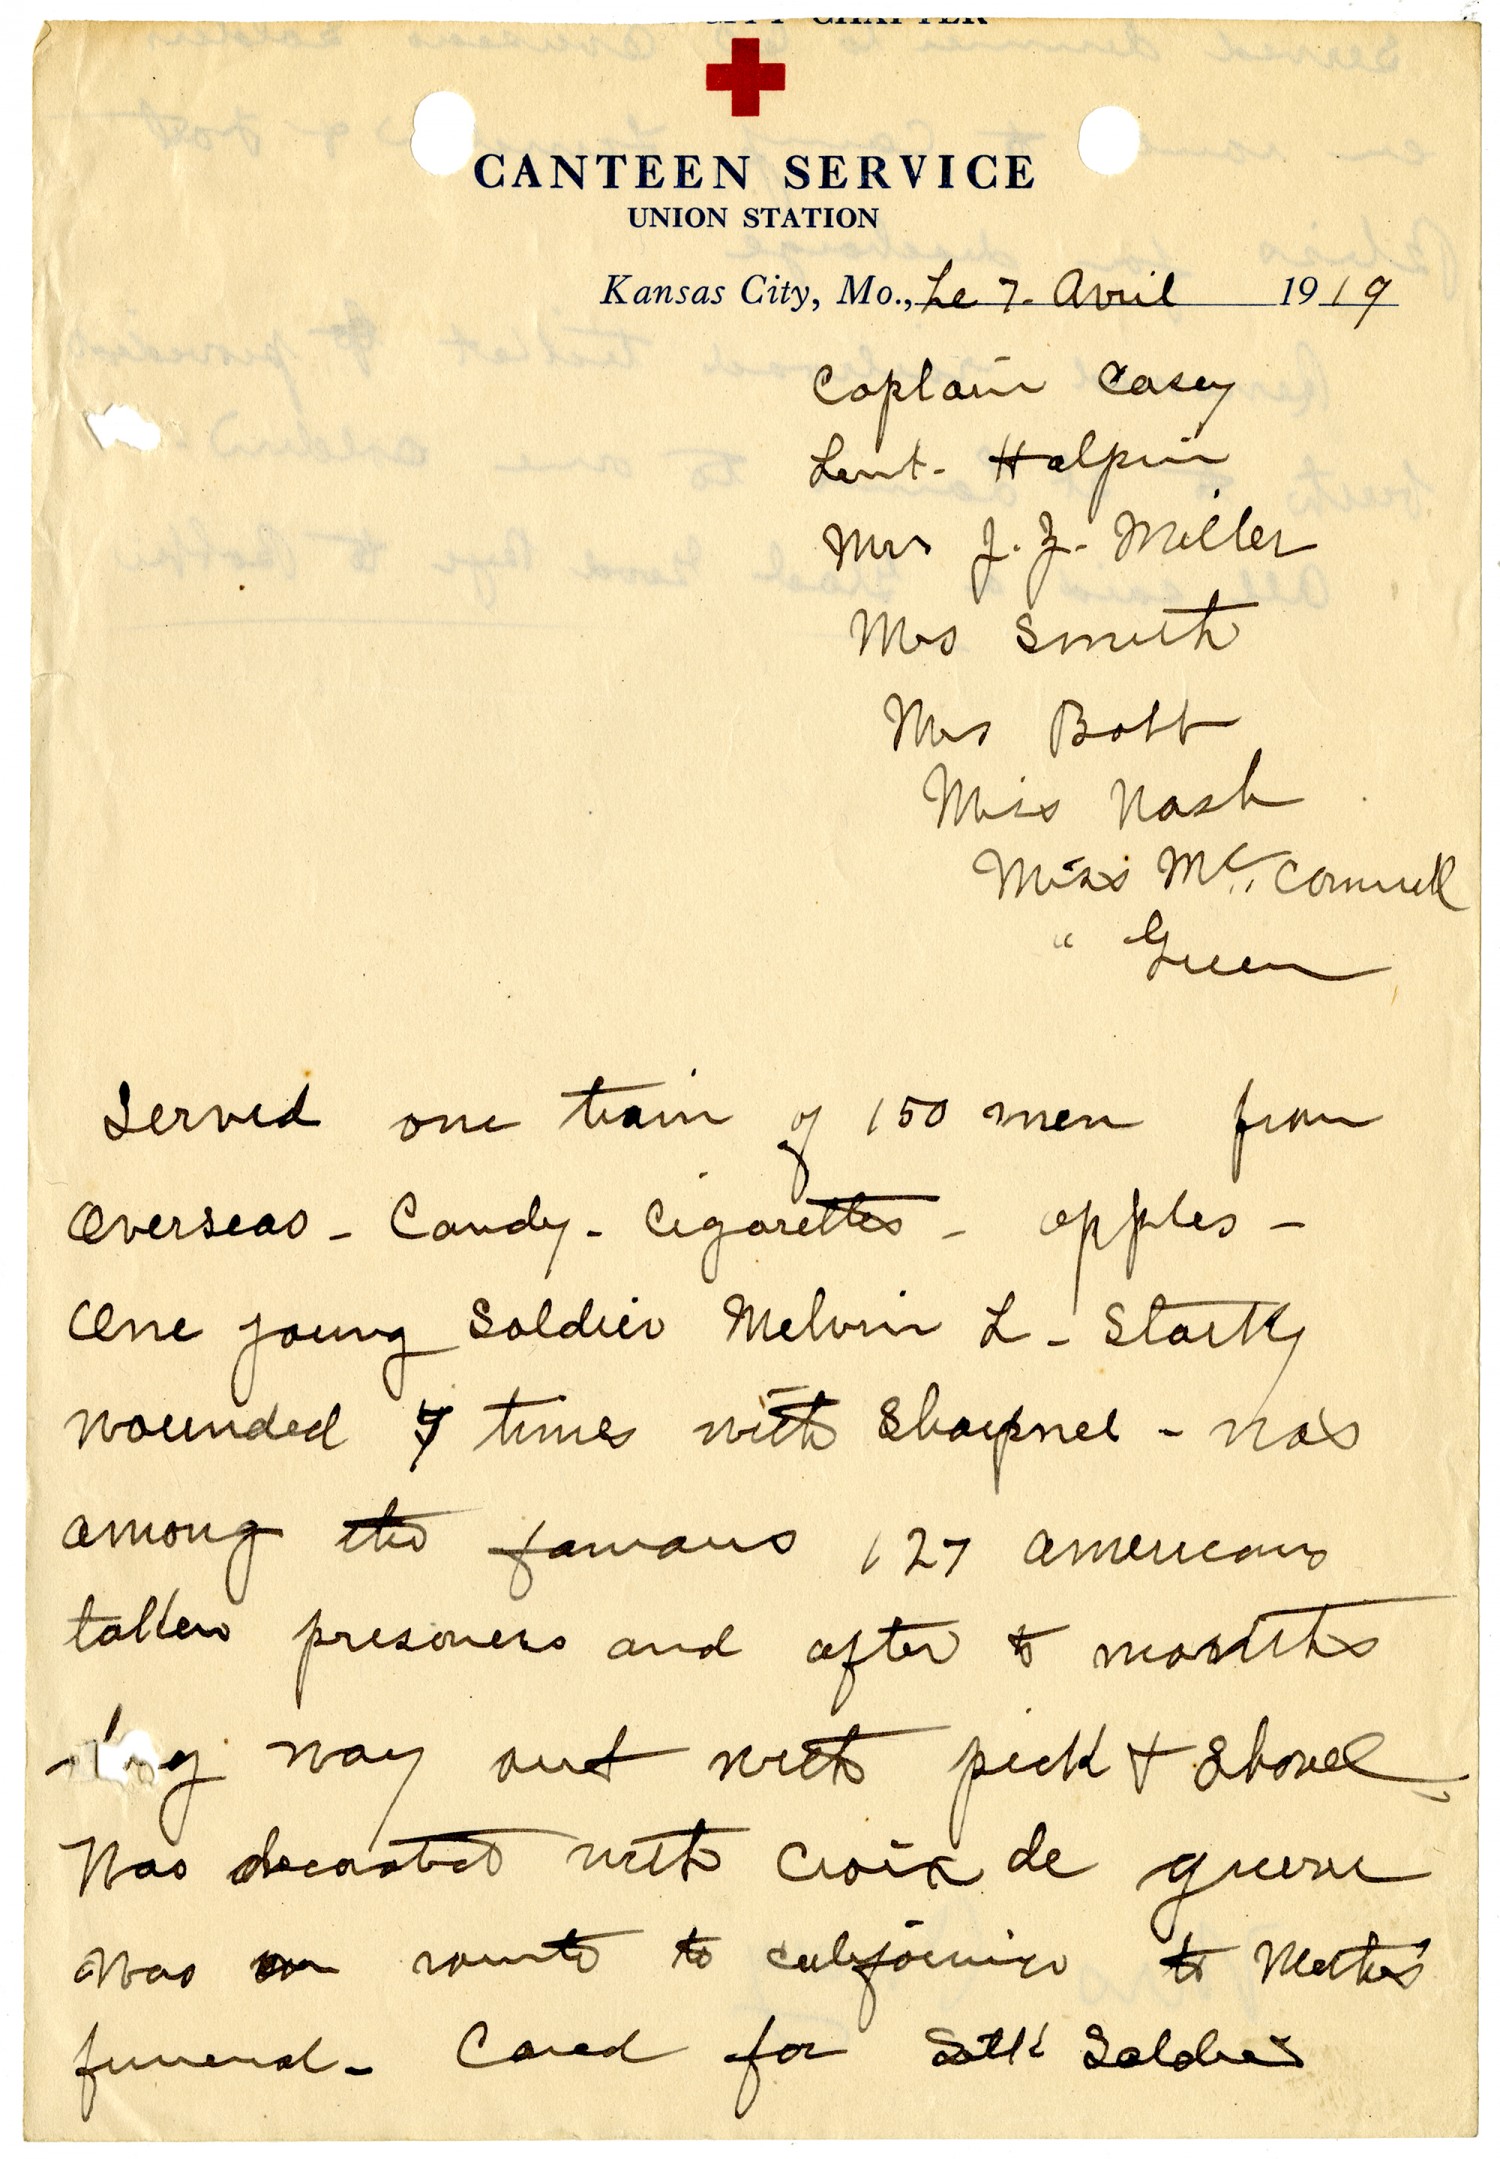 CITY CHAPTER
CANTEEN SERVICE
UNION STATION
Kansas City, Mo., Le 7. Avril 1919
Captain Casey
Leut. Halpin
Mrs J. Z. Miller
Mrs Smith
Mrs Bott
Miss Nash
Miss Mc,, Connell
" Green
Served one train of 150 men from
Overseas - Candy - Cigarettes - apples -
One young Soldier Melvin L - Starky
wounded 7 times with Sharpnel - was
among the famous 127 americans
taken prisoners and after months
way out with pick + Shovel
Was decorated with Croix de guerre
was en route to California to Mother's
funeral - Cared for Sick Soldier